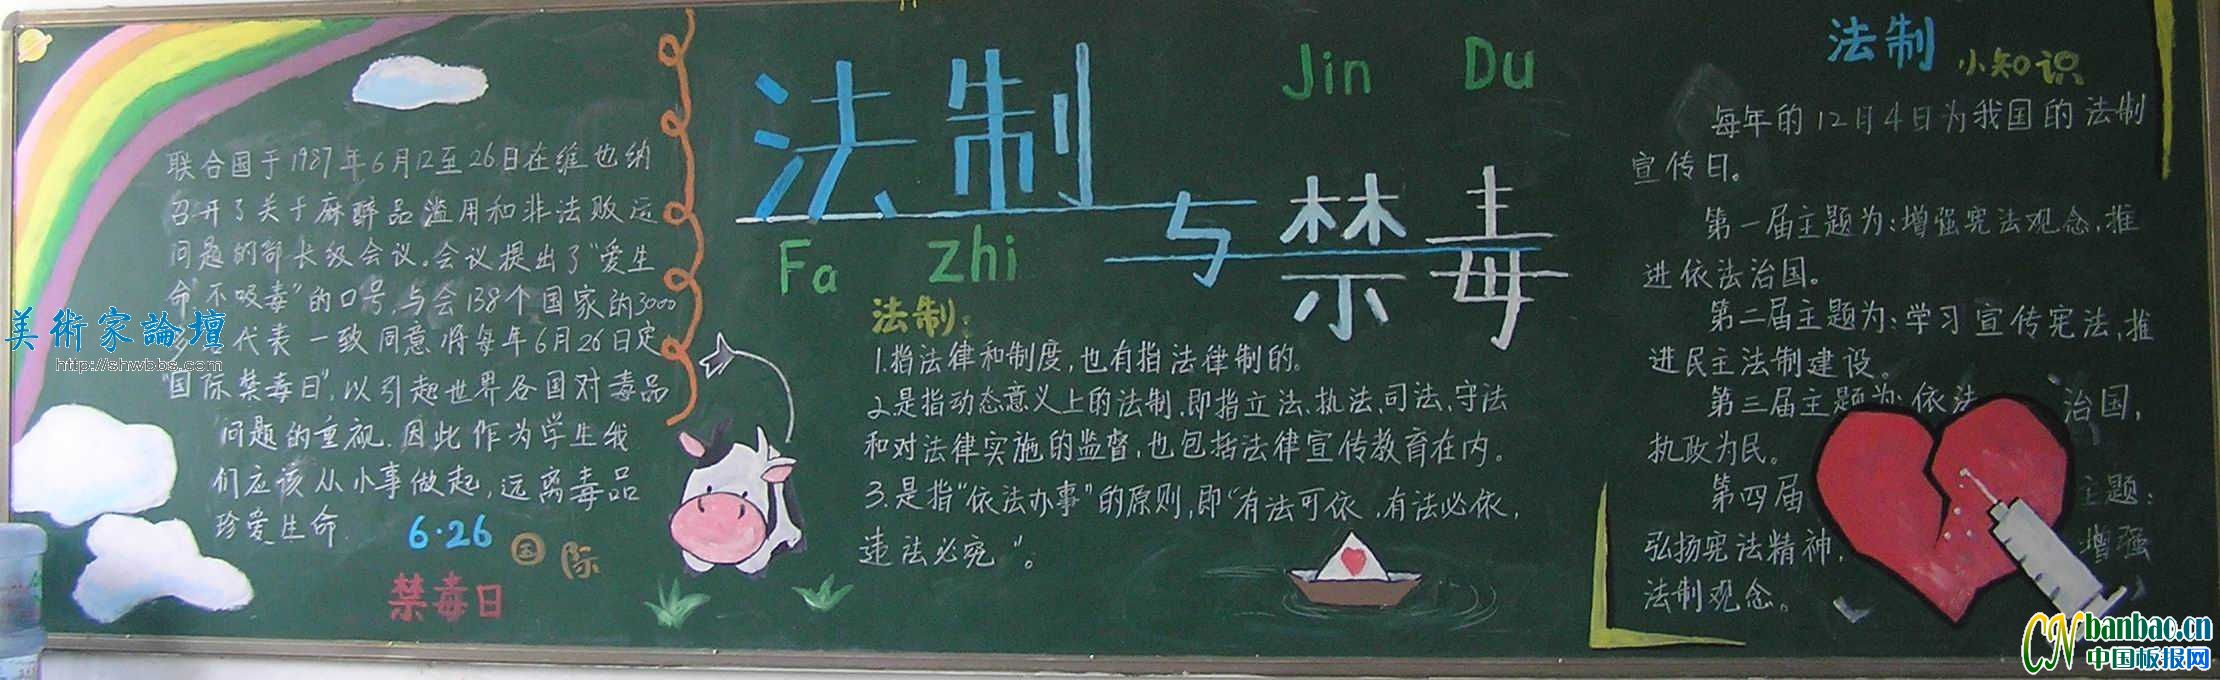 联合国于1987年6月12至26日在维也纳
召开了关于麻醉品滥用和非法贩运
问题的部长级会议。会议提出了“爱生
命,不吸毒”的口号,与会138个国家的3000
代表一致同意将每年6月26日定
“国际禁毒日”,以引起世界各国对毒品
问题的重视.因此作为学生我
们应该从小事做起,远离毒品
珍爱生命.
6·26 国际
禁毒日
美術家論壇
http://shwbbs.com
法制
Fa Zhi
Jin Du
与禁毒
法制:
1.指法律和制度,也有指法律制的。
2.是指动态意义上的法制.即指立法、执法、司法、守法
和对法律实施的监督,也包括法律宣传教育在内。
3.是指“依法办事”的原则,即“有法可依,有法必依,
违法必究”。
法制 小知识
每年的12月4日为我国的法制
宣传日。
第一届主题为:增强宪法观念,推
进依法治国。
第二届主题为:学习宣传宪法,推
进民主法制建设。
第三届主题为:依法治国,
执政为民。
第四届主题:
弘扬宪法精神,增强
法制观念。
CN banbao.cn
中国板报网